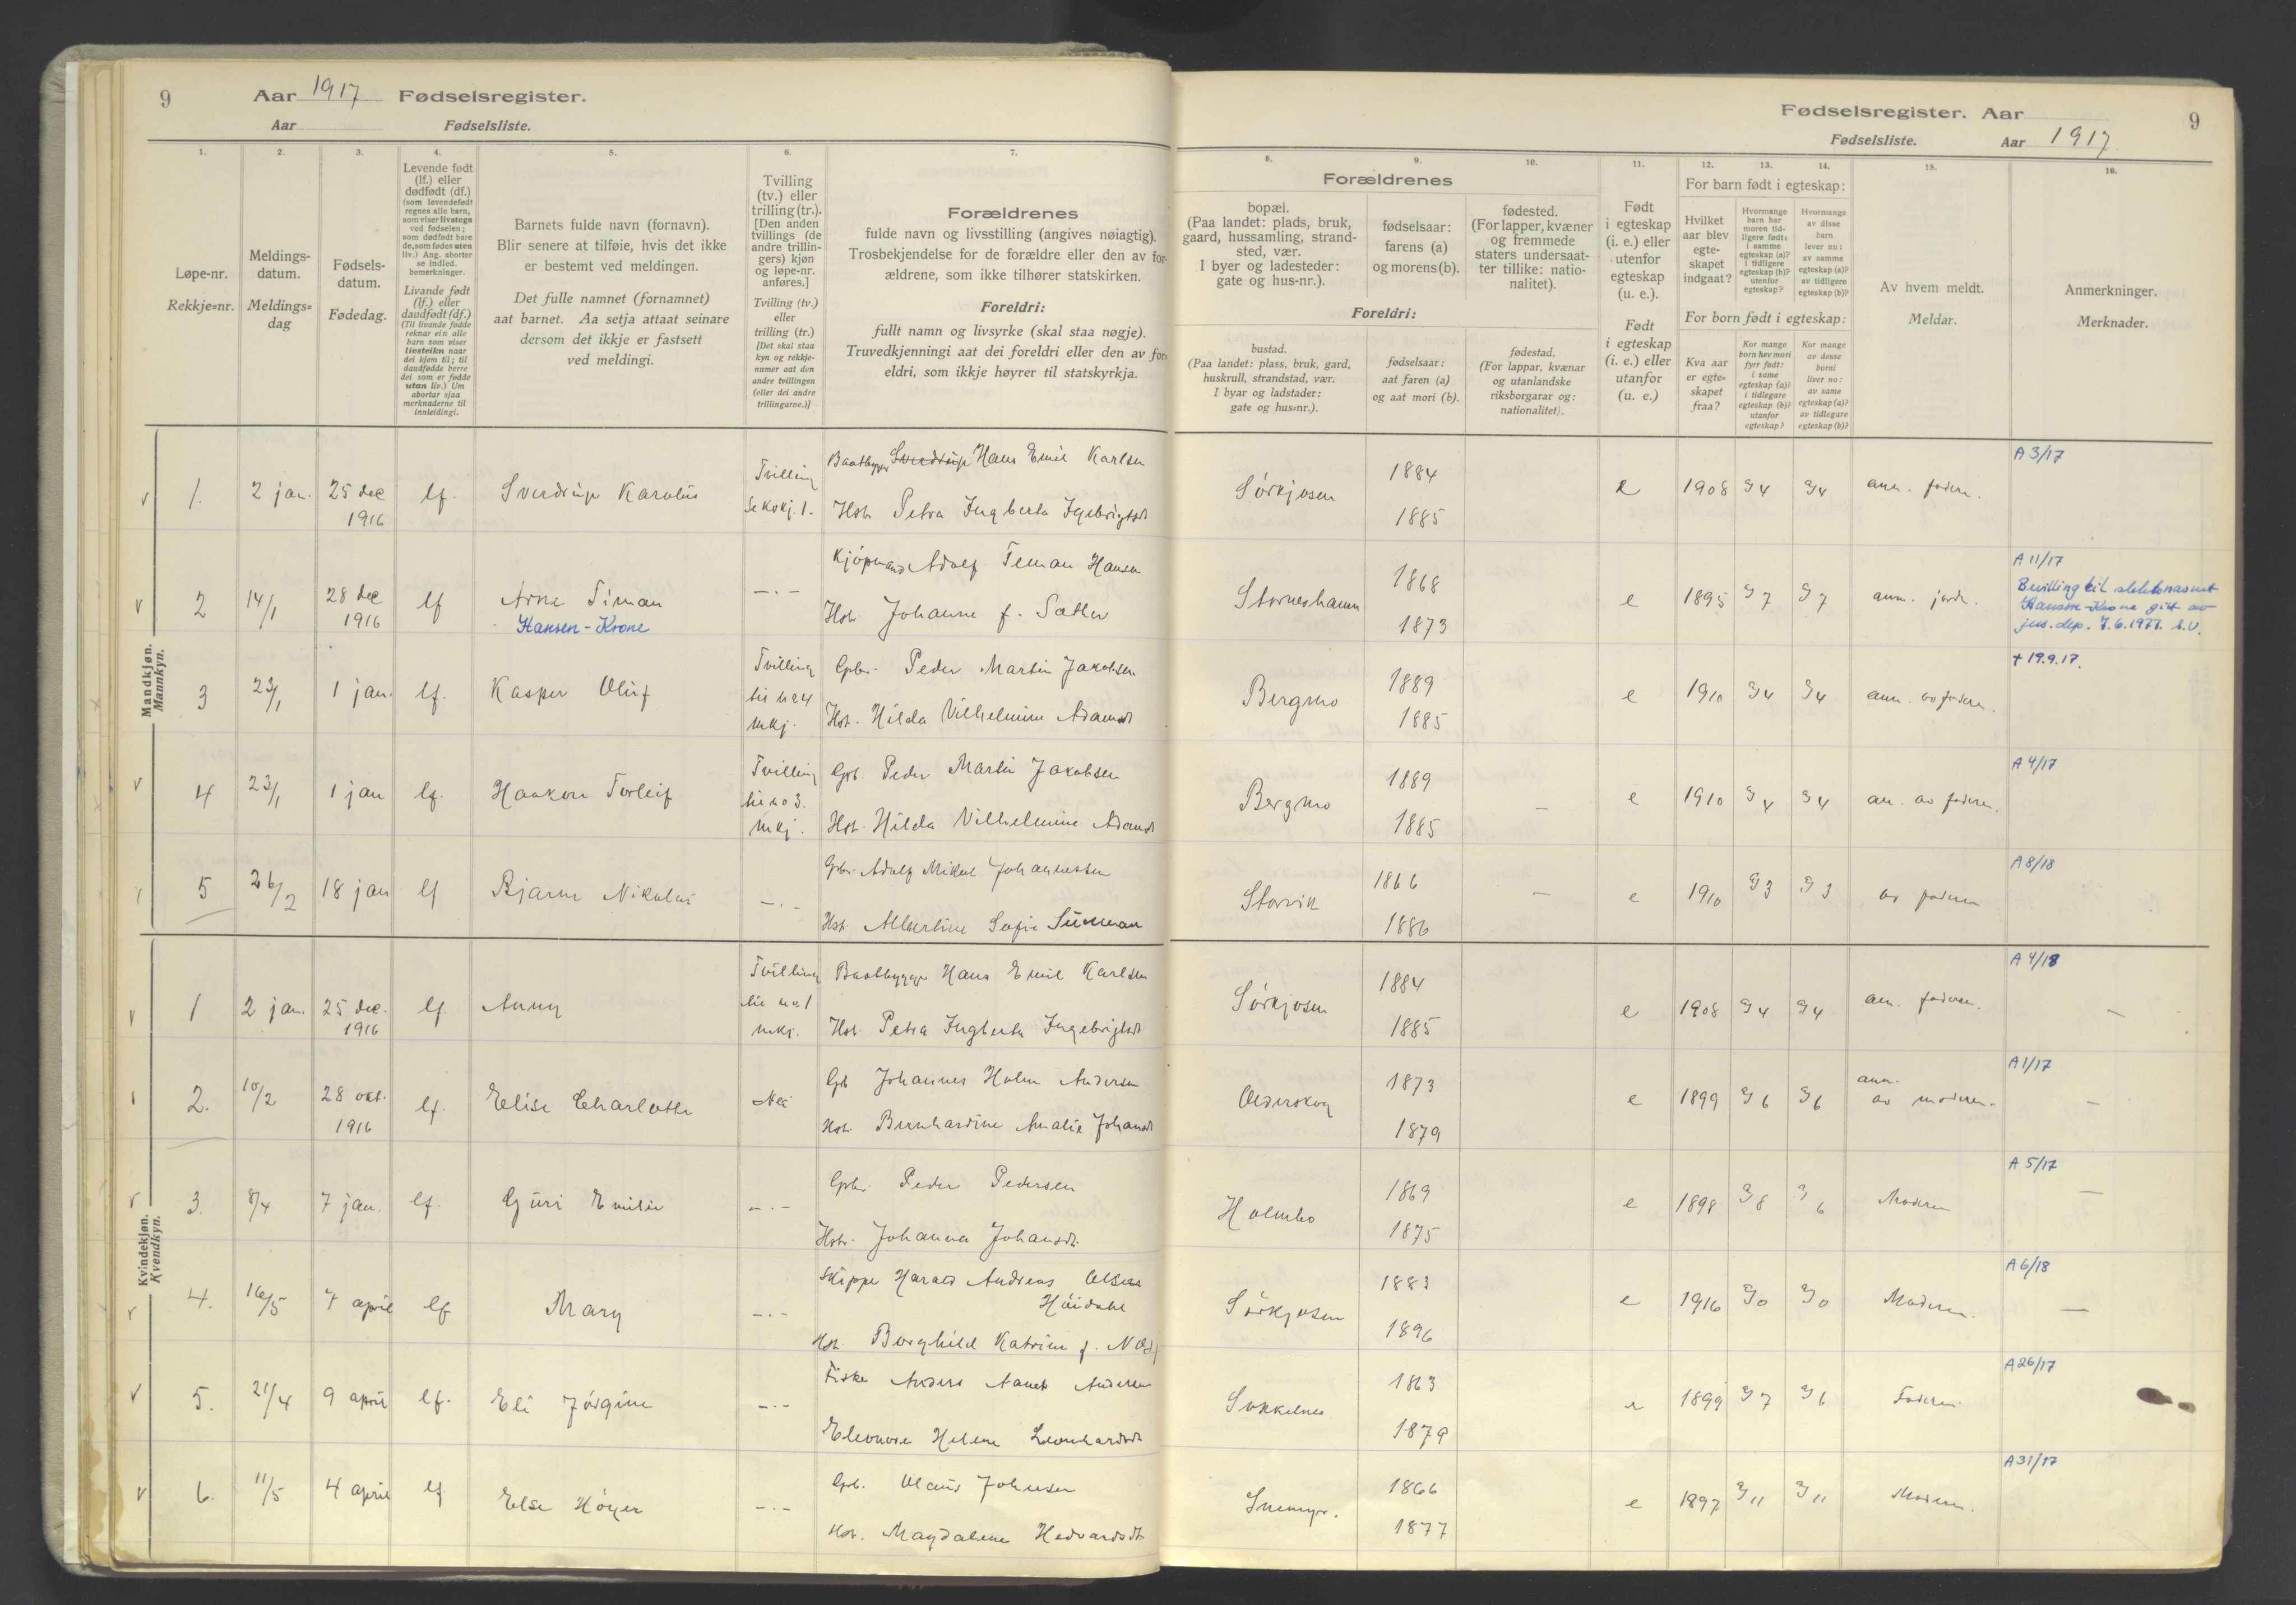 9 Aar 1917 Fødselsregister.
Aar Fødselsliste.
Fødselsregister. Aar 9
Fødselsliste. Aar 1917.
1. 2. 3. 4. 5. 6. 7.
Løpe-nr.
Rekkje=nr.
Meldings-
datum.
Meldings=
dag
Fødsels-
datum.
Fødedag.
Levende født
(lf.) eller
dødfødt (df.)
(som levendefødt
regnes alle barn,
som viser livstegn
ved fødselen;
som dødfødt bare
de, som fødes uten
liv.) Ang. aborter
se indled.
bemerkninger.
Livande født
(lf.) eller
daudfødt (df.)
(Til livande fødde
reknar ein alle
barn som viser
livsteikn naar
dei kjem til; til
daudfødde berre
dei som er fødde
utan liv.) Um
abortar sjaa
merknaderne til
innleidingi.
Barnets fulde navn (fornavn).
Blir senere at tilføie, hvis det ikke
er bestemt ved meldingen.
Det fulle namnet (fornamnet)
aat barnet. Aa setja attaat seinare
dersom det ikkje er fastsett
ved meldingi.
Tvilling
(tv.) eller
trilling (tr.).
[Den anden
tvillings (de
andre trillin-
gers) kjøn
og løpe-nr.
anføres.]
Tvilling (tv.)
eller
trilling (tr.)
[Det skal staa
kyn og rekkje-
numer aat den
andre tvillingen
(eller dei andre
trillingarne.)]
Forældrenes
fulde navn og livsstilling (angives nøiagtig).
Trosbekjendelse for de forældre eller den av for-
ældrene, som ikke tilhører statskirken.
Foreldri:
fullt namn og livsyrke (skal staa nøgje).
Truvedkjenningi aat dei foreldri eller den av for-
eldri, som ikkje høyrer til statskyrkja.
8. 9. 10. 11. 12. 13. 14. 15. 16.
Forældrenes
bopæl.
(Paa landet: plads, bruk,
gaard, hussamling, strand-
sted, vær.
I byer og ladesteder:
gate og hus-nr.).
fødselsaar:
farens (a)
og morens (b).
fødested.
(For lapper, kvæner
og fremmede
staters undersaat-
ter tillike: natio-
nalitet).
Foreldri:
bustad.
(Paa landet: plass, bruk, gard,
huskrull, strandstad, vær.
I byar og ladstader:
gate og hus=nr.).
fødselsaar:
aat faren (a)
og aat mori (b).
fødestad.
(For lappar, kvænar
og utanlandske
riksborgarar og:
nationalitet).
Født
i egteskap
(i. e.) eller
utenfor
egteskap
(u. e.).
Født
i egteskap
(i. e.) eller
utanfor
(u. e.)
For barn født i egteskap:
Hvilket
aar blev
egte-
skapet
indgaat?
Hvormange
barn har
moren tid-
ligere født:
i samme
egteskap (a)?
i tidligere
egteskap (b)?
utenfor
egteskap?
Hvormange
av disse
barn
lever nu:
av samme
egteskap (a)?
av tidligere
egteskap (b)?
For born født i egteskap:
Kva aar
er egte=
skapet
fraa?
Kor mange
born hev mori
fyrr født:
i same
egteskap (a)?
i tidlegare
egteskap (b)?
utanfor
egteskap?
Kor mange
av desse
borni
liver no:
av same
egteskap (a)?
av tidlegare
egteskap (b)?
Av hvem meldt.
Meldar.
Anmerkninger.
Merknader.
Mandkjøn.
Mannkyn.
1. 2 jan. 25 dec 1916 lf. Sverdrup Karolus Tvilling Se kvkj. 1.
Baatbygger Sverdrup Hans Emil Karlsen
Hst. Petra Ingberta Ingebrigtsdt
Sörkjosen 1884 1885 e 1908 4 4 anm. faderen. A 3/17
2 14/1 28 dec 1916 lf Arne Timan Hansen-Krone -.-
Kjöpmand Adolf Teman Hansen
Hst. Johanne f. Sæther
Storneshamn 1868 1873 e 1895 7 7 anm. A 11/17
Bevilling til slektsnavnet
Hansen-Krone gitt av
jus. dep. 7.6.1977. S.U.
3 23/1 1 jan. lf. Kasper Oluf Tvilling til no 4 mkj.
Gbr. Peder Martin Jakobsen
Hst. Hilda Vilhelmine Adamsdt
Bergmo 1889 1885 e 1910 4 4 anm. av faderen. + 19.9.17.
4 23/1 1 jan lf. Haakon Torleif Tvilling til no 3. mkj.
Gbr. Peder Martin Jakobsen
Hst. Hilda Vilhelmine Adamsdt
Bergmo 1889 1885 - e 1910 4 4 an. av faderen. A 4/17
5 26/2 18 jan lf Bjarne Nikolai -.-
Gbr. Adolf Mikal Johannessen
Hst. Albertine Sofie
Storvik 1866 1886 - e 1910 3 3 av faderen A 8/18
Kvindekjøn.
Kvendkyn.
1 2 jan. 25 dec. 1916 lf. Anny Tvilling til no 1 mkj.
Baatbygger Hans Emil Karlsen
Hst. Petra Ingberta Ingebrigtsdt
Sörkjosen 1884 1885 e 1908 4 4 anm. faderen. A 4/18 -
2. 10/2 28 okt. 1916 lf. Elise Charlotte Nei
Gbr Johannes Holm Andersen
Hst. Bernhardine Amalie Johansdt
Olderskog 1873 1879 e 1899 6 6 anm. av moderen. A 1/17 -
3. 8/4 7 jan. lf. Guri Emilie -.-
Gbr. Peder Pedersen
Hst. Johanna Johansdt.
Holmbo 1869 1875 e 1898 8 6 Moderen A 5/17 -
4. 16/5 7 april lf Mary -.-
Skipper Harald Andreas Olsen
Höidahl
Hst. Borghild Katrine f.
Sörkjosen 1883 1896 e 1916 0 0 Moderen. A 6/18 -
5. 21/4 9 april lf. Eli Jörgine -.-
Fisker Anders Andersen
Eleonore Helene Leonhardsdt
Sokkelnes 1863 1879 e 1899 7 6 Faderen A 26/17
6. 11/5 4 april lf Else Höyer -.-
Gbr. Olaus Johnsen
Hst. Magdalene Hedvardsdt
Snemyr. 1866 1877 e 1897 11 11 Moderen. A 31/17